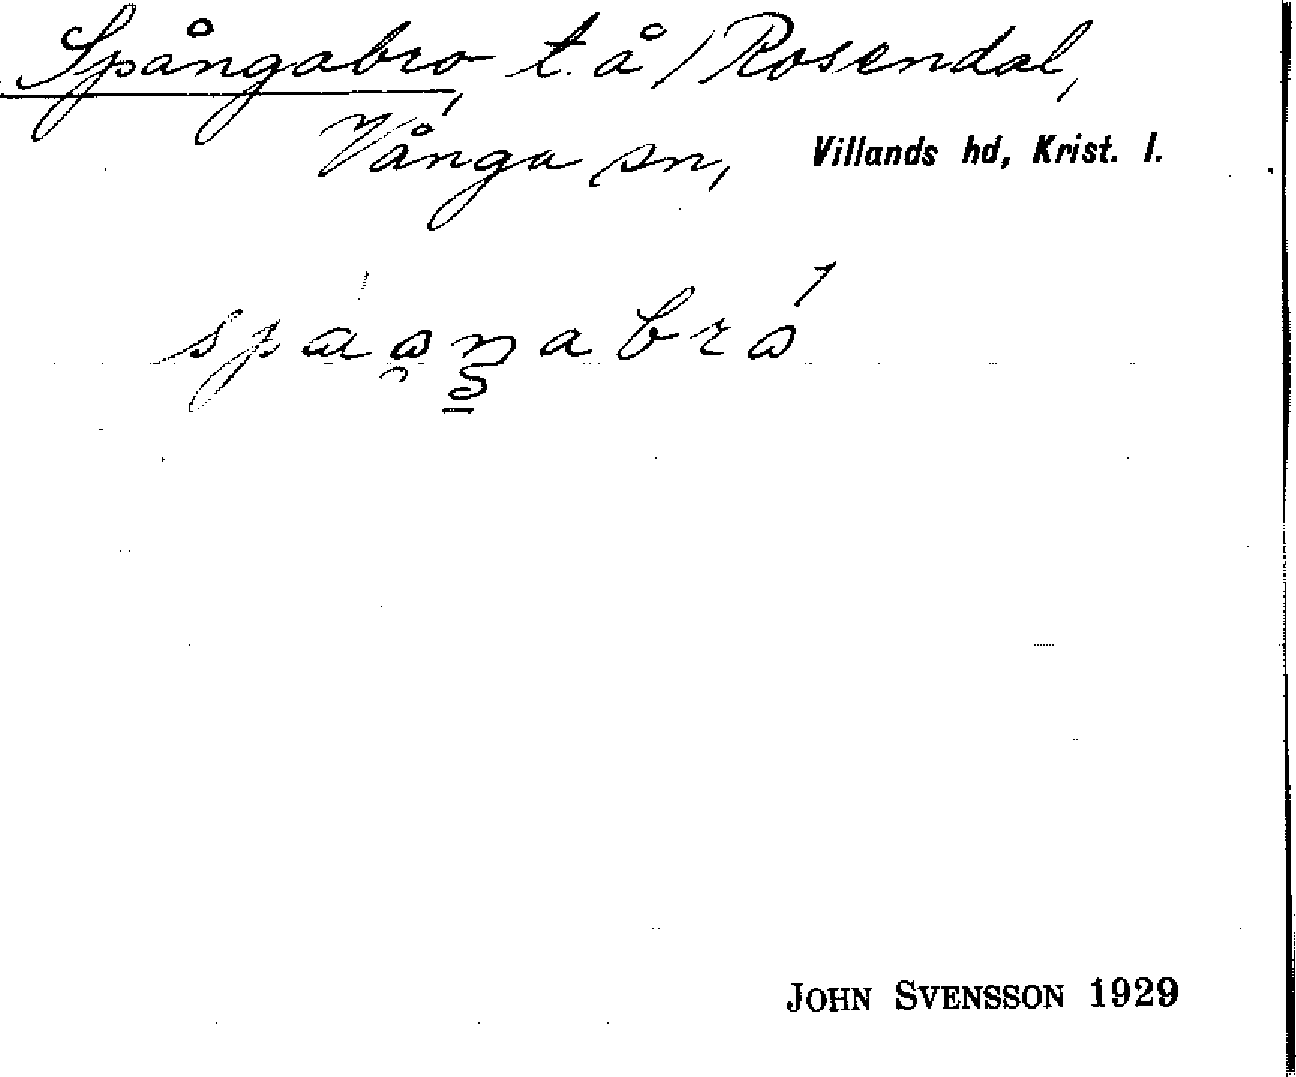 Spångabro t. å / Rosendal,
Vånga sn, Villands hd, Krist. l.
JOHN SVENSSON 1929